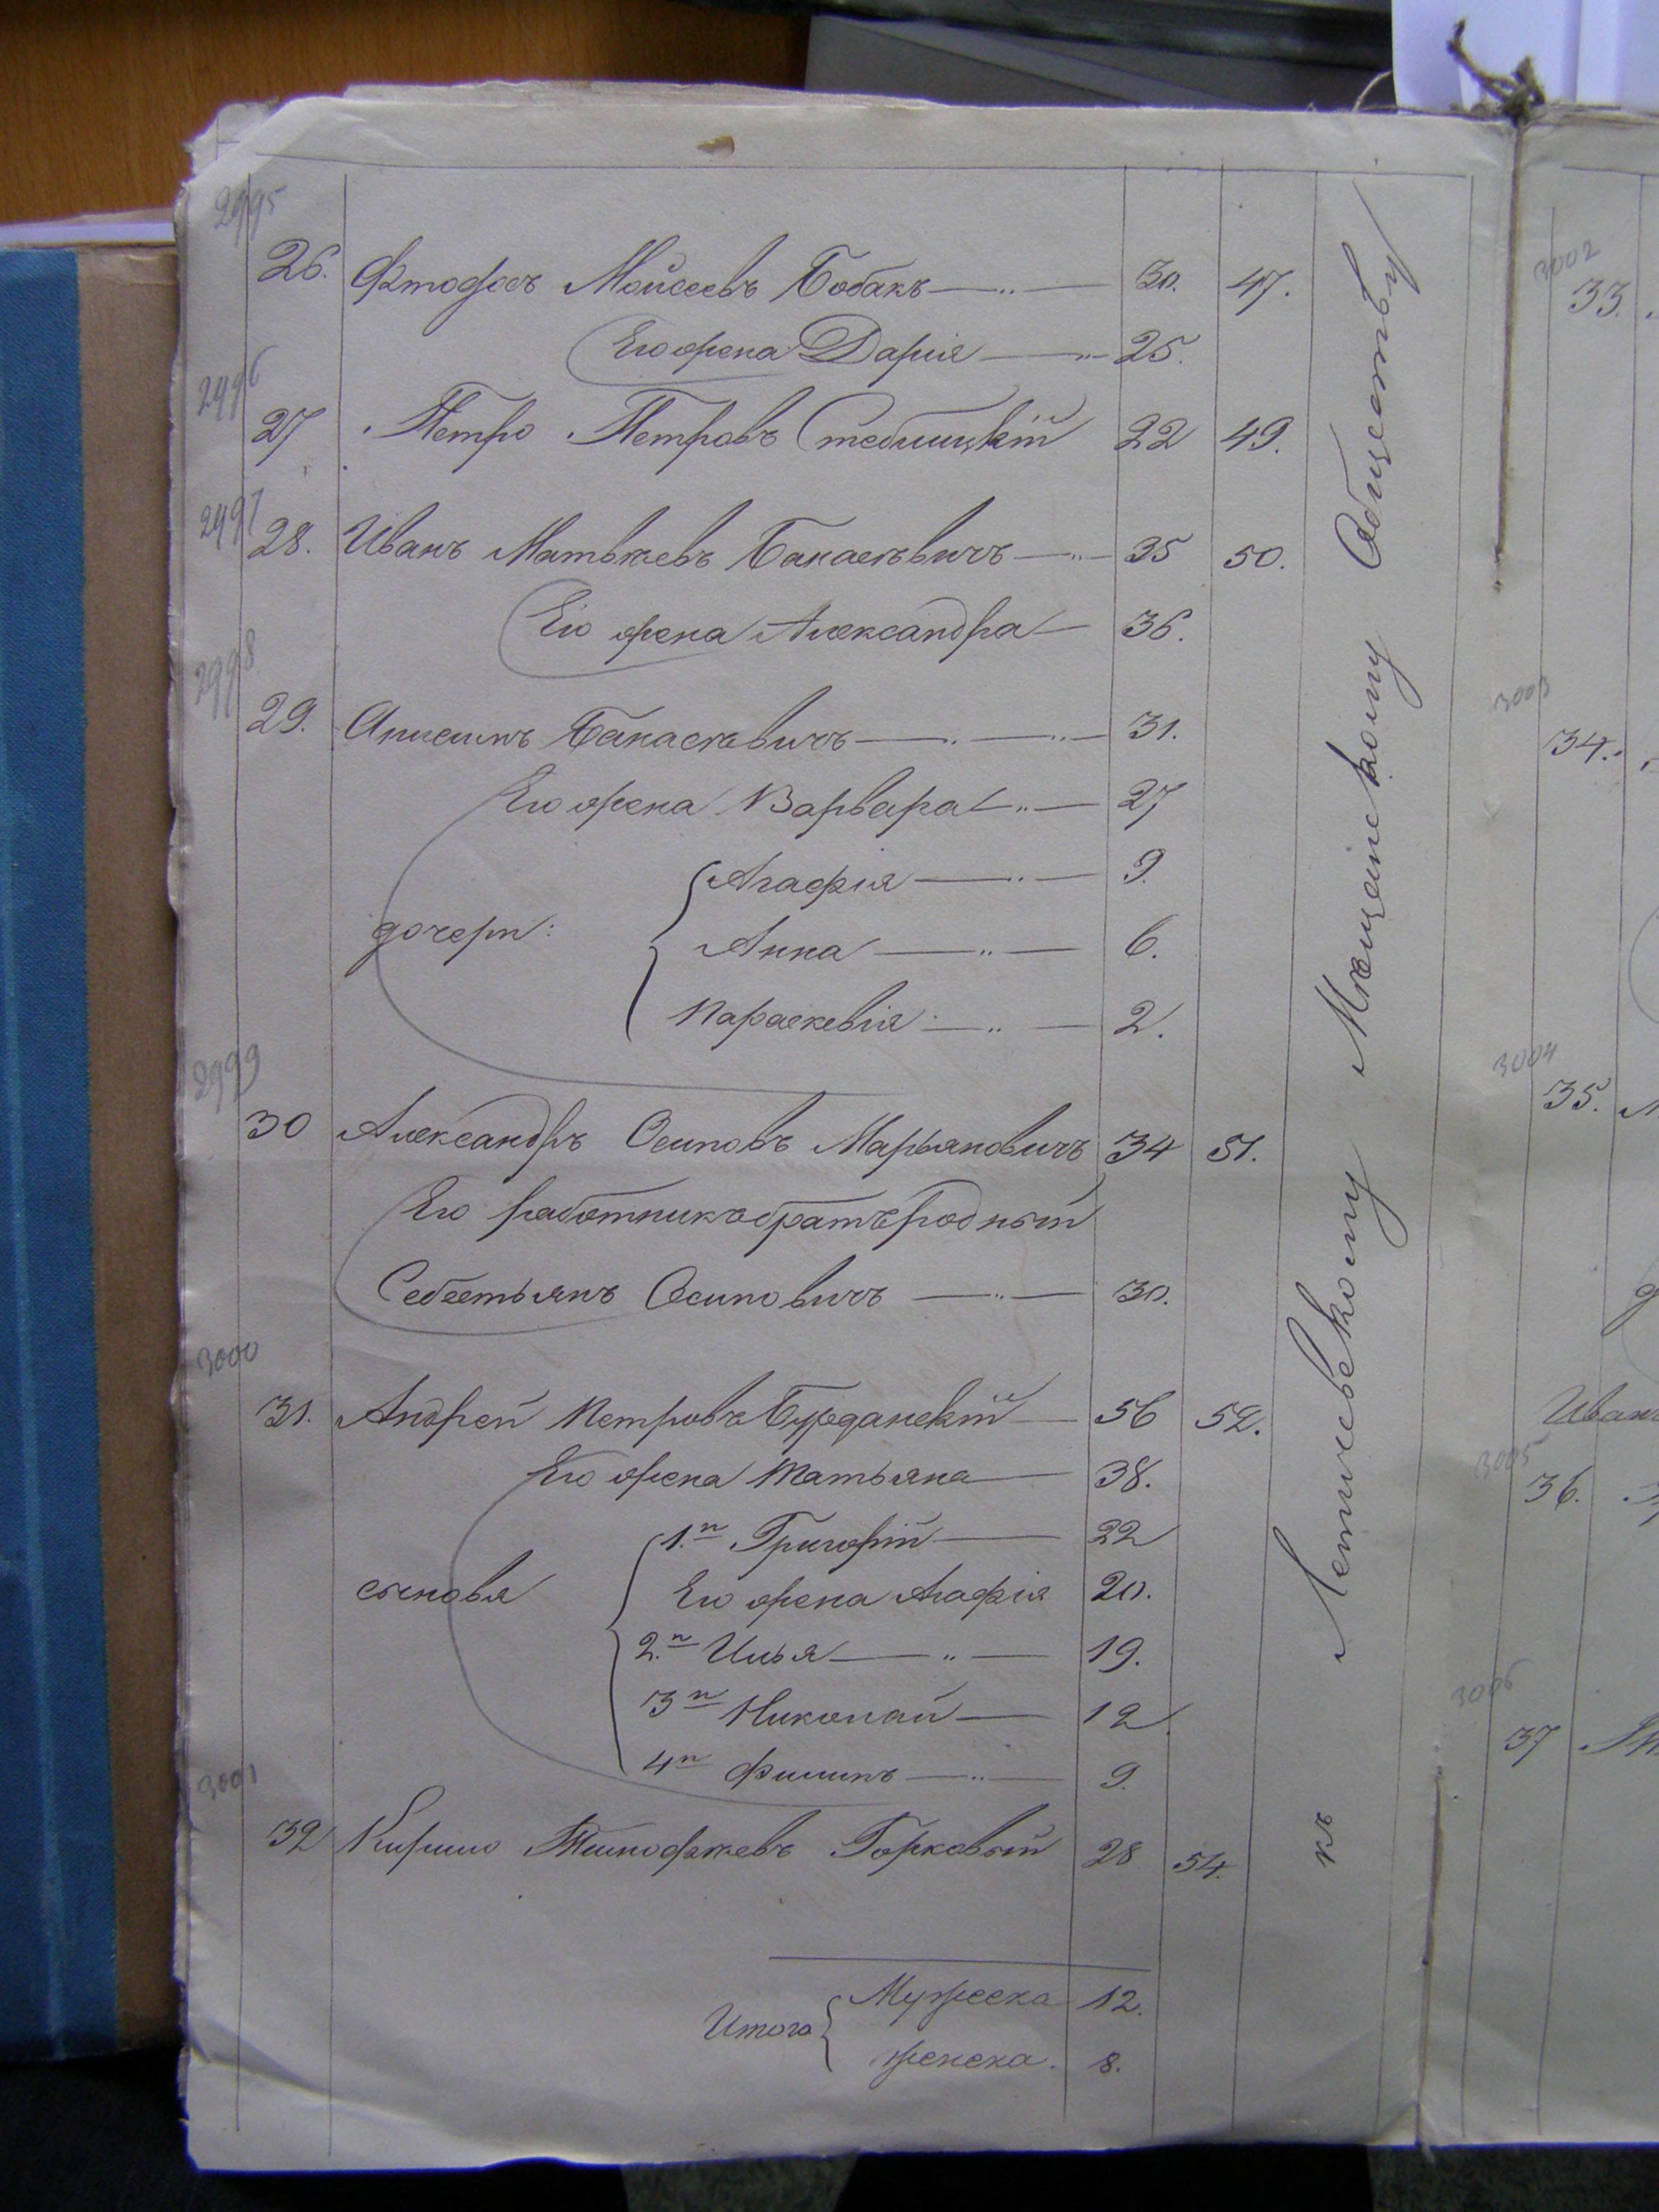 2995
26. Моисеевъ Бобакъ 30. 47.
Его жена Дарія 25.
2996
27 Петро Петровъ Стебницкій 22 49.
2997
28. Иванъ Матвѣевъ Банасевичъ 35 50.
Его жена Александра 36.
2998
29. Банасевичъ 31.
Его жена Варвара 27
Агафія 9.
дочери: Анна 6.
Параскевія 2.
2999
30 Александръ Осиповъ Марьяновичъ 34 51.
Его работникъ братъ родный
Себестьянъ Осиповичъ 30.
3000
31. Андрей Петровъ 56 52.
Его жена Татьяна 38.
1.й Григорій 22
сыновья Его жена Агафія 20.
2.й Илья 19.
3й Николай 12
4й Филипъ 9.
3001
32 Кирило Тимофѣевъ Горковый 28 54.
Мужеска 12.
Итого
женска. 8.
къ Летичевскому Мѣщанскому Обществу
3002
33.
3003
34.
3004
35.
Иванъ
3005
36.
3006
37